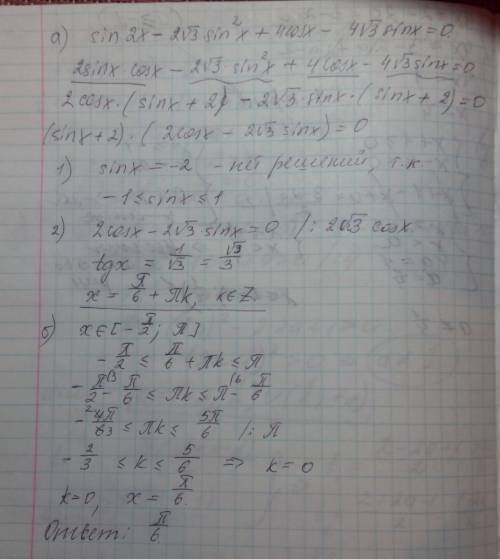 а) sin 2x - 2√3 sin²x + 4cosx - 4√3 sinx = 0
2sinx cosx - 2√3 sin²x + 4cosx - 4√3 sinx = 0
2cosx · (sinx + 2) - 2√3 · sinx · (sinx + 2) = 0
(sinx + 2) · (2cosx - 2√3 sinx) = 0
1) sinx = -2 - нет решений, т.к.
-1 ≤ sinx ≤ 1
2) 2cosx - 2√3 · sinx = 0 /: 2√3 cosx
tgx = 1/√3 = √3/3
x = π/6 + πk, k∈Z
б) x∈[-π/2; π]
-π/2 ≤ π/6 + πk ≤ π
-π/2 \3 - π/6 ≤ πk ≤ π \6 - π/6
-²4π/6₃ ≤ πk ≤ 5π/6 /: π
-2/3 ≤ k ≤ 5/6 => k = 0
k=0, x = π/6
Ответ: π/6